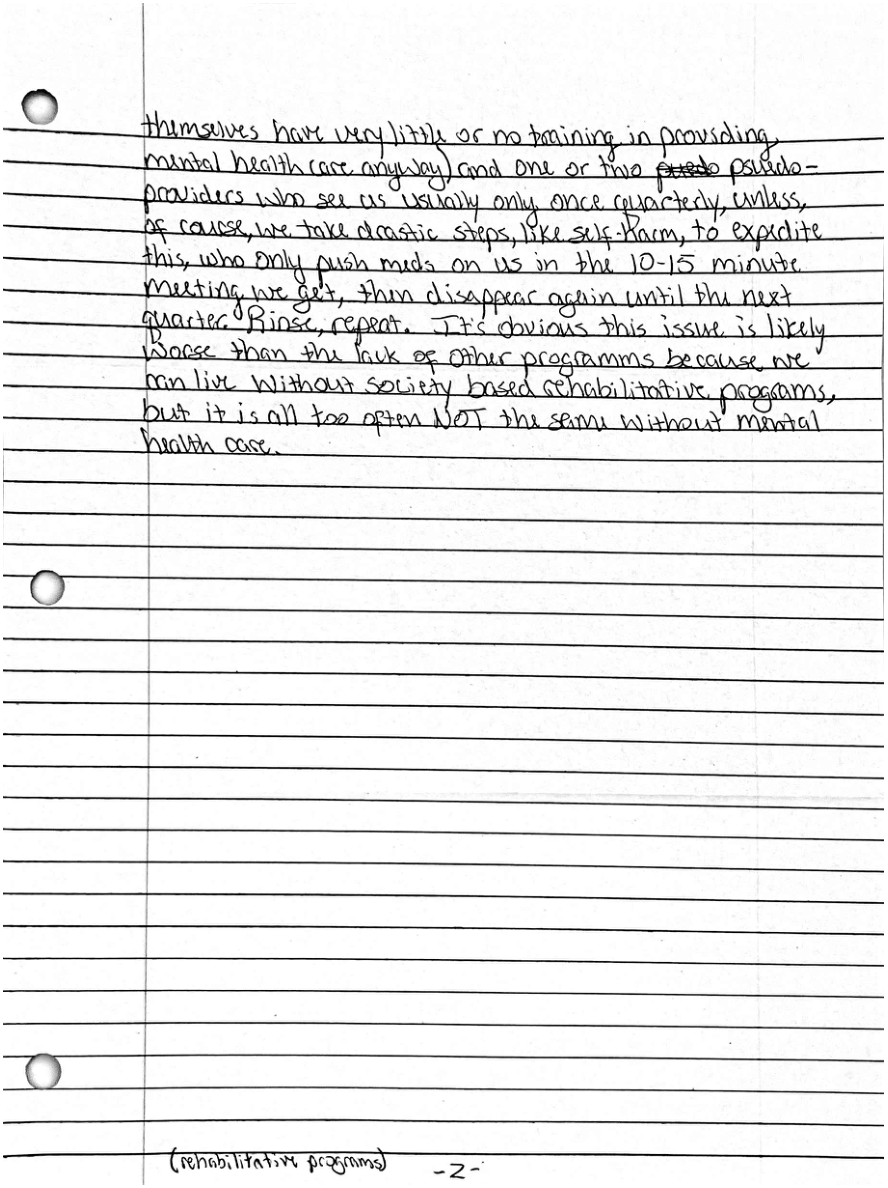 themselves have very little or no training in providing
mental health care anyway) and one or two psuedo-
providers who see us usually only once quarterly, unless,
of course, we take drastic steps, like self-harm, to expedite
this, who only push meds on us in the 10-15 minute
meeting we get, then disappear again until the next
quarter. Rinse, repeat. It's obvious this issue is likely
worse than the lack of other programms because we
can live without society based rehabilitative programs,
but it is all too often NOT the same without mental
health care.
(rehabilitative programs)
-2-